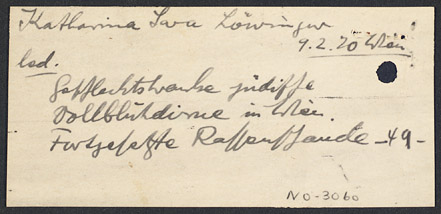 Katharina Sara Löwinger
9.2.20 Wien
led.
Geschlechtskranke jüdische
Vollblutdirne in Wien.
Fortgesetzte Rassenschande -49-
NO-3060